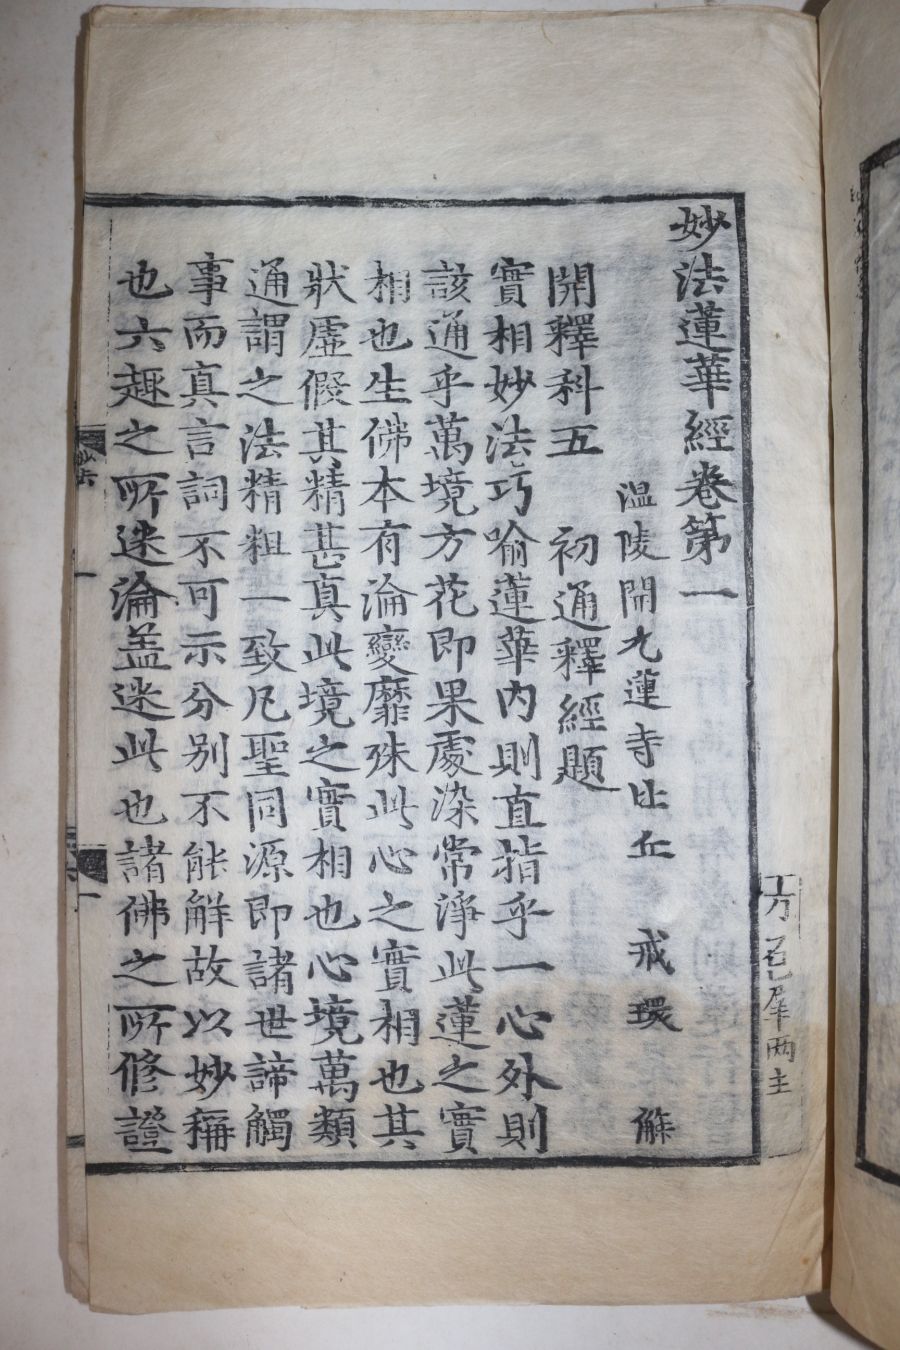 妙法蓮華經卷第一
温陵開元蓮寺比丘 戒環 解
開釋科五 初通釋經題
實相妙法巧喻蓮華内則直指乎一心外則
該通乎萬境方花即果處染常淨此蓮之實
相也生佛本有淪變靡殊此心之實相也其
狀虛假其精甚真此境之實相也心境萬類
通謂之法精粗一致凡聖同源即諸世諦觸
事而真言詞不可示分别不能解故以妙稱
也六趣之所迷淪盖迷此也諸佛之所修證
妙法
一
一